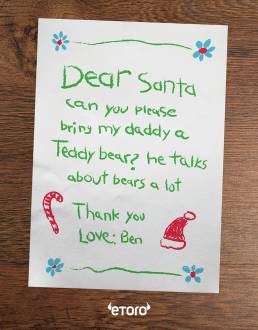 Dear Santa
can you please
bring my daddy a
Teddy bear? he talks
about bears a lot
Thank you
Love: Ben
eToro